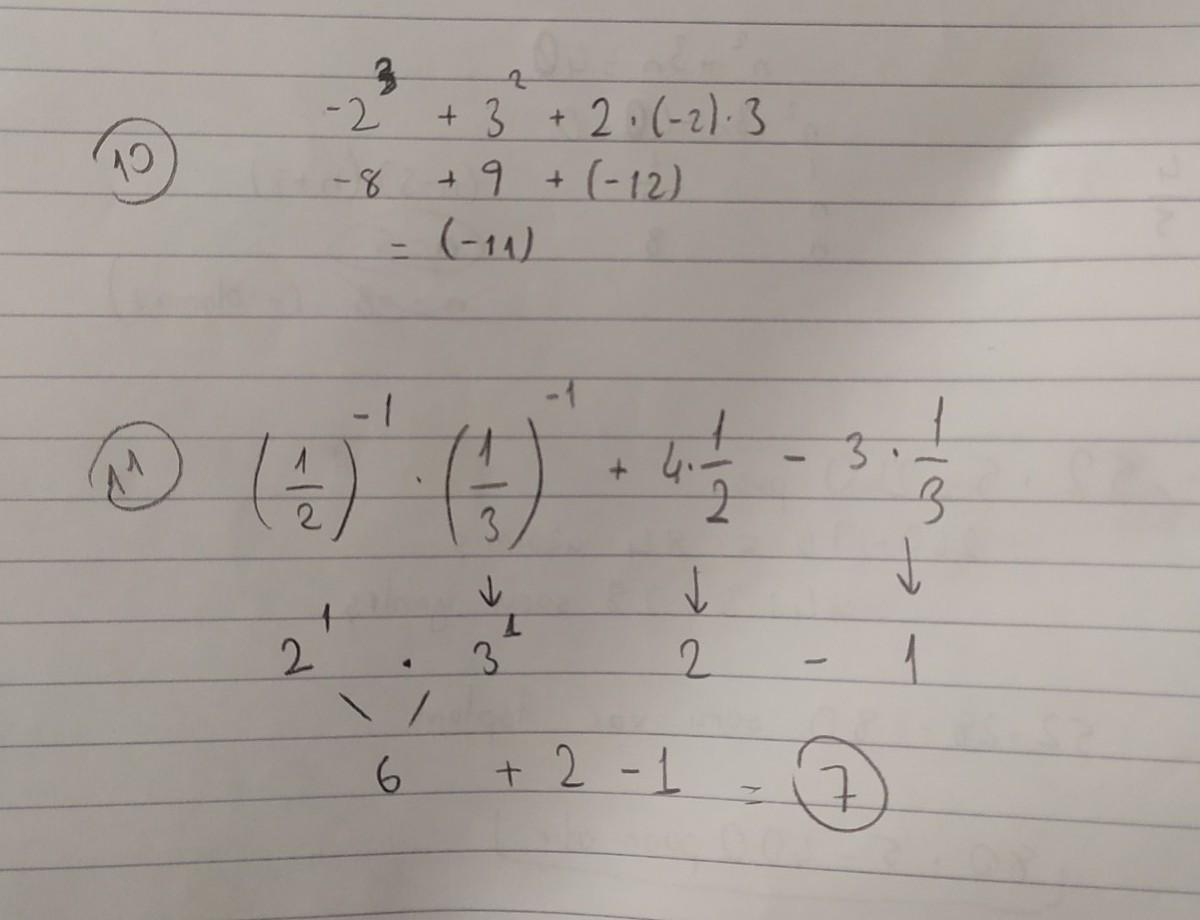 10
-2³ + 3² + 2 · (-2) · 3
-8 + 9 + (-12)
= (-11)
11
(1/2)⁻¹ · (1/3)⁻¹ + 4 · 1/2 - 3 · 1/3
↓ ↓ ↓
2¹ · 3¹ 2 - 1
\ /
6 + 2 - 1 = 7